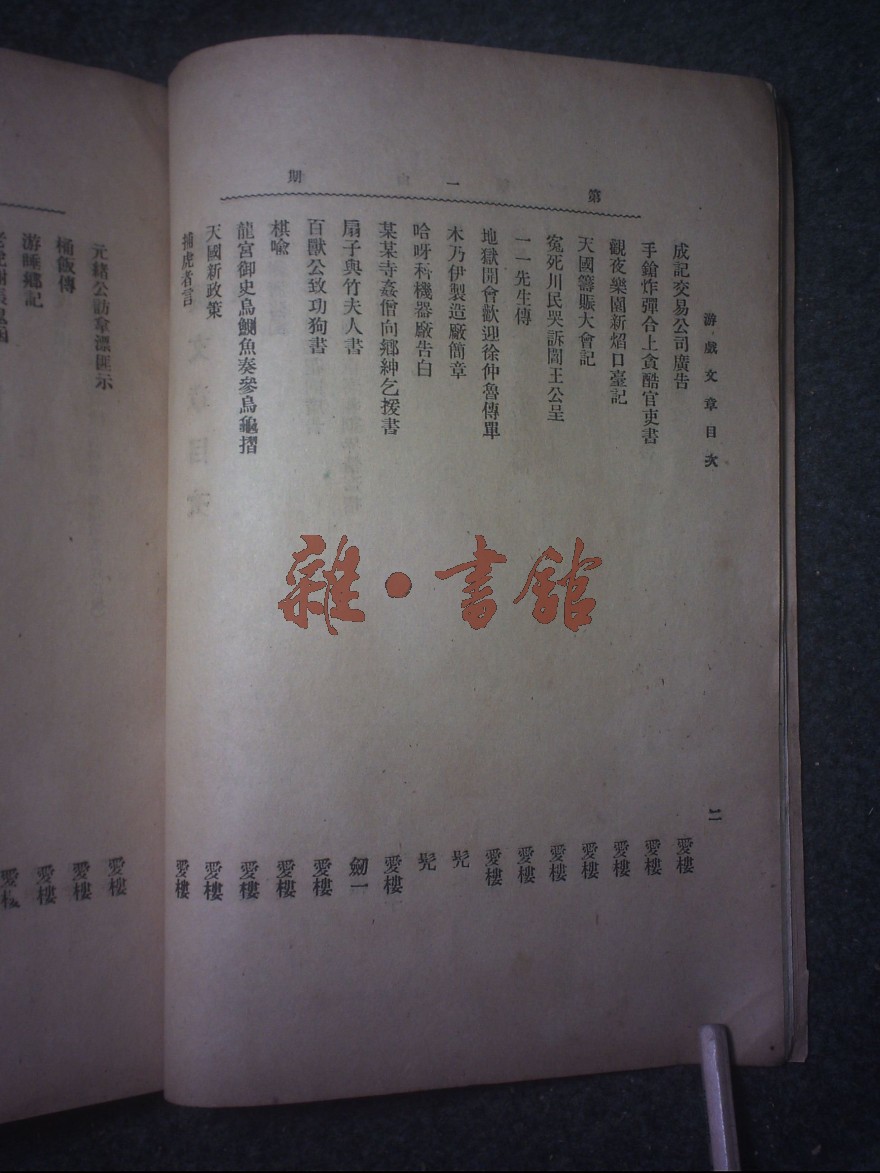 游戲文章目次
二
第一期
成記交易公司廣告 愛樓
手鎗炸彈合上貪酷官吏書 愛樓
觀夜樂園新焰口臺記 愛樓
天國籌賑大會記 愛樓
冤死川民哭訴閻王公呈 愛樓
一一先生傳 愛樓
地獄開會歡迎徐仲魯傳單 愛樓
木乃伊製造廠簡章 髡
哈呀科機器廠告白 髡
某某寺姦僧向鄉紳乞援書 愛樓
扇子與竹夫人書 劒一
百獸公致功狗書 愛樓
棋喩 愛樓
龍宮御史烏鰂魚奏參烏龜摺 愛樓
天國新政策 愛樓
捕虎者言 愛樓
元緒公勸拿漂匪示 愛樓
桶飯傳 愛樓
游睡鄉記 愛樓
愛樓
雜·書館